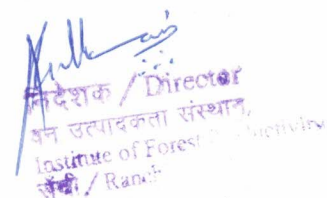 निदेशक / Director
वन उत्पादकता संस्थान,
Institute of Forest Productivity
राँची / Ranchi